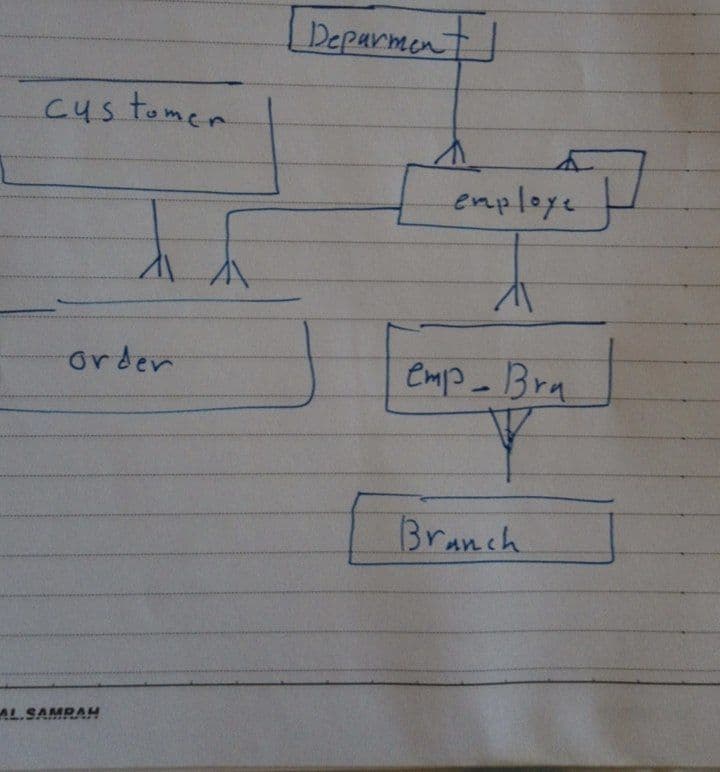 Deparment
Customer
employe
order
emp_Bra
Branch
AL.SAMRAH